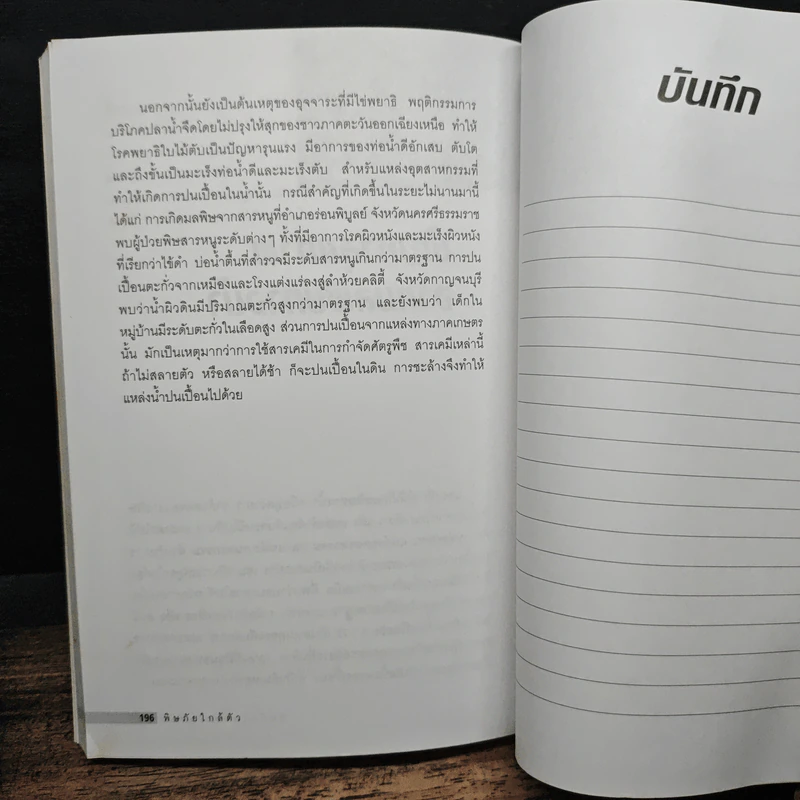 นอกจากนั้นยังเป็นต้นเหตุของอุจจาระที่มีไข่พยาธิ พฤติกรรมการ
บริโภคปลาน้ำจืดโดยไม่ปรุงให้สุกของชาวภาคตะวันออกเฉียงเหนือ ทำให้
โรคพยาธิใบไม้ตับเป็นปัญหารุนแรง มีอาการของท่อน้ำดีอักเสบ ตับโต
และถึงขั้นเป็นมะเร็งท่อน้ำดีและมะเร็งตับ สำหรับแหล่งอุตสาหกรรมที่
ทำให้เกิดการปนเปื้อนในน้ำนั้น กรณีสำคัญที่เกิดขึ้นในระยะไม่นานมานี้
ได้แก่ การเกิดมลพิษจากสารหนูที่อำเภอร่อนพิบูลย์ จังหวัดนครศรีธรรมราช
พบผู้ป่วยพิษสารหนูระดับต่างๆ ทั้งที่มีอาการโรคผิวหนังและมะเร็งผิวหนัง
ที่เรียกว่าไข้ดำ บ่อน้ำตื้นที่สำรวจมีระดับสารหนูเกินกว่ามาตรฐาน การปน
เปื้อนตะกั่วจากเหมืองและโรงแต่งแร่ลงสู่ลำห้วยคลิตี้ จังหวัดกาญจนบุรี
พบว่าน้ำผิวดินมีปริมาณตะกั่วสูงกว่ามาตรฐาน และยังพบว่า เด็กใน
หมู่บ้านมีระดับตะกั่วในเลือดสูง ส่วนการปนเปื้อนจากแหล่งทางภาคเกษตร
นั้น มักเป็นเหตุมากว่าการใช้สารเคมีในการกำจัดศัตรูพืช สารเคมีเหล่านี้
ถ้าไม่สลายตัว หรือสลายได้ช้า ก็จะปนเปื้อนในดิน การชะล้างจึงทำให้
แหล่งน้ำปนเปื้อนไปด้วย
196 พิษภัยใกล้ตัว
บันทึก